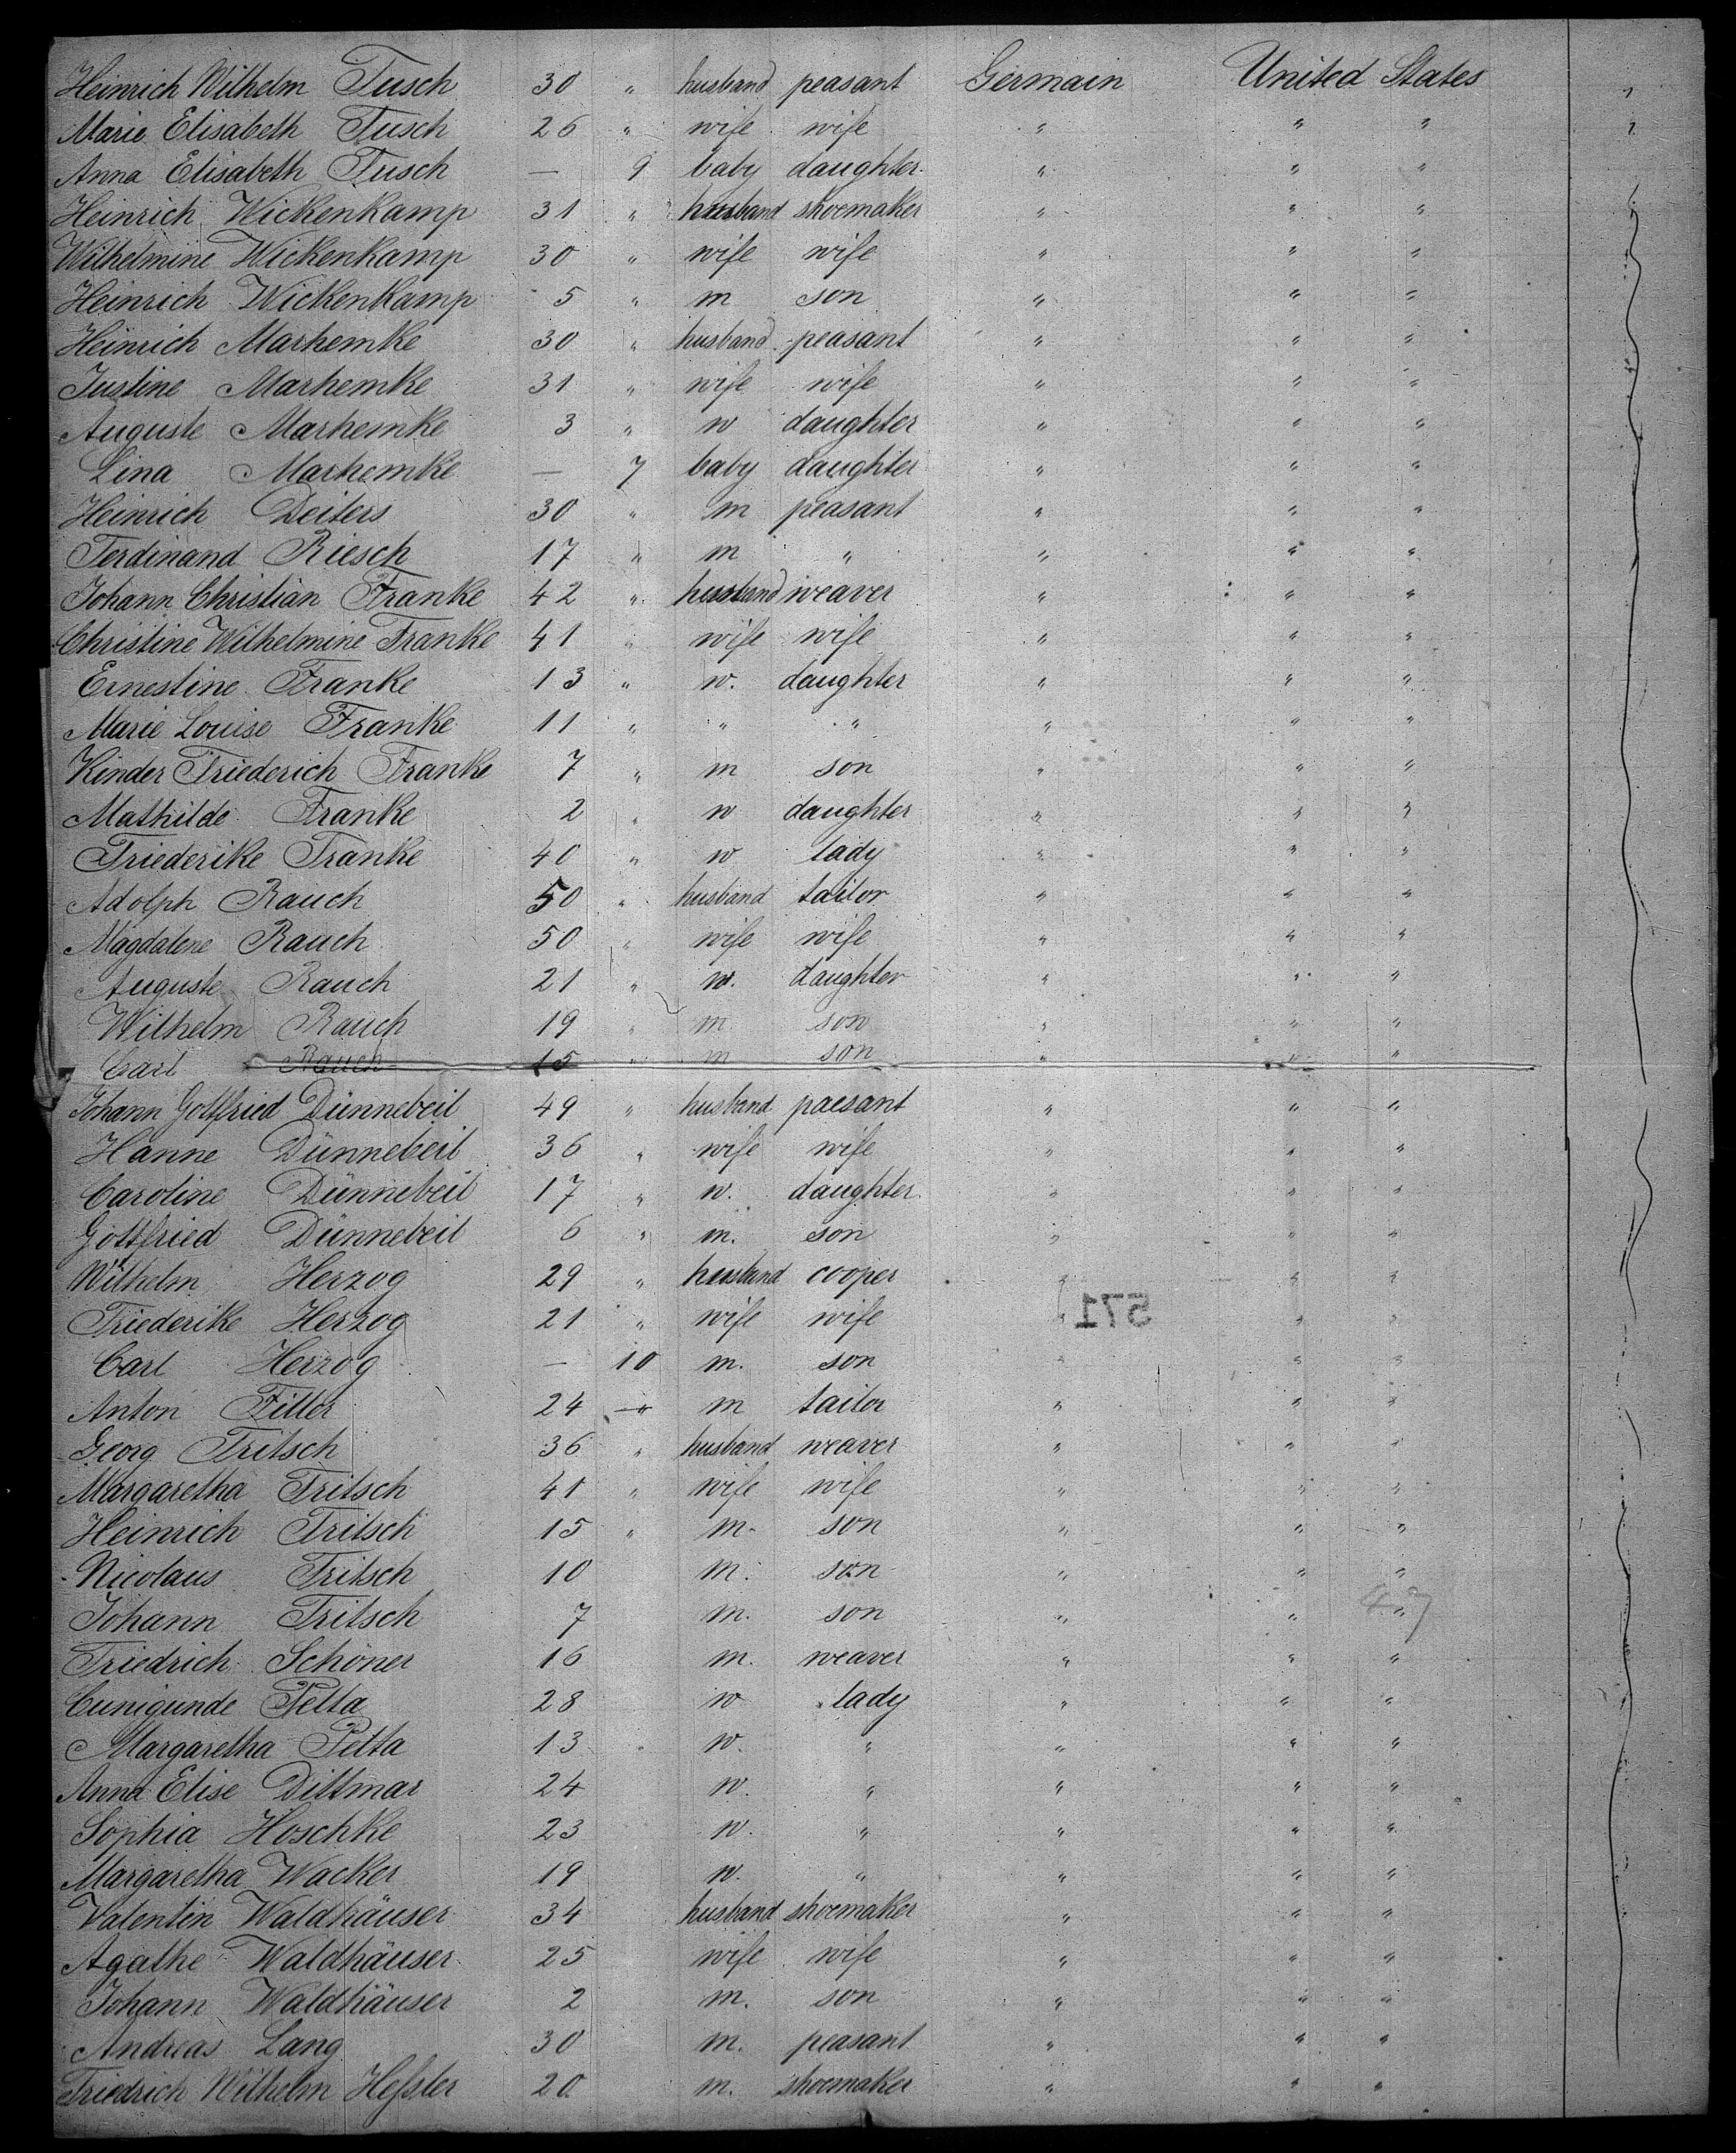 Heinrich Wilhelm Tusch 30 " husband peasant Germain United States
Marie Elisabeth Tusch 26 " wife wife " " "
Anna Elisabeth Tusch — 9 baby daughter " " "
Heinrich Wickenkamp 31 " husband shoemaker " " "
Wilhelmine Wickenkamp 30 " wife wife " " "
Heinrich Wickenkamp 5 " m son " " "
Heinrich Marhemke 30 " husband peasant " " "
Justine Marhemke 31 " wife wife " " "
Auguste Marhemke 3 " w daughter " " "
Lina Marhemke — 7 baby daughter " " "
Heinrich Deiters 30 " m peasant " " "
Ferdinand Riesch 17 " m " " " "
Johann Christian Franke 42 " husband weaver " " "
Christine Wilhelmine Franke 41 " wife wife " " "
Ernestine Franke 13 " w. daughter " " "
Marie Louise Franke 11 " " " " " "
Kinder Friederich Franke 7 " m son " " "
Mathilde Franke 2 " w daughter " " "
Friederike Franke 40 " w lady " " "
Adolph Rauch 50 " husband tailor " " "
Magdalene Rauch 50 " wife wife " " "
Auguste Rauch 21 " w. daughter " " "
Wilhelm Rauch 19 " m son " " "
Carl Rauch 15 " m son " " "
Johann Gottfried Dünnebeil 49 " husband paesant " " "
Hanne Dünnebeil 36 " wife wife " " "
Caroline Dünnebeil 17 " w. daughter " " "
Gottfried Dünnebeil 6 " m. son " " "
Wilhelm Herzog 29 " husband cooper " " "
571
Friederike Herzog 21 " wife wife " " "
Carl Herzog — 10 m. son " " "
Anton Filler 24 " m tailor " " "
Georg Fritsch 36 " husband weaver " " "
Margaretha Fritsch 41 " wife wife " " "
Heinrich Fritsch 15 " m. son " " "
Nicolaus Fritsch 10 m. son " " "
Johann Fritsch 7 m. son " " "
Friedrich Schöner 16 m. weaver " " "
Cunigunde Petta 28 w lady " " "
Margaretha Petta 13 w. " " " "
Anna Elise Dittmar 24 w. " " " "
Sophia Hoschke 23 w. " " " "
Margaretha Wacker 19 w. " " " "
Valentin Waldhäuser 34 husband shoemaker " " "
Agathe Waldhäuser 25 wife wife " " "
Johann Waldhäuser 2 m. son " " "
Andreas Lang 30 m. peasant " " "
Friedrich Wilhelm Heſsler 20 m. shoemaker " " "